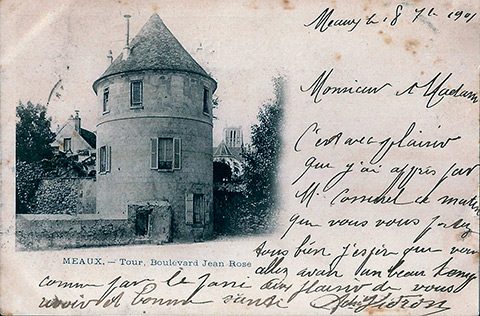 Meaux le 8 7bre 1901
Monsieur et Madame
C'est avec plaisir
que j'ai appris par
M. ce matin
que vous vous portez
MEAUX. — Tour, Boulevard Jean Rose
tous bien, j'espère que vous
allez avoir un beau temps
comme par le passé plaisir de vous
revoir et bonne santé